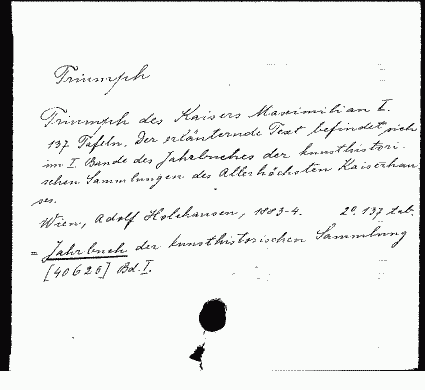 Triumph
Triumph des Kaisers Maximilian I.
137 Tafeln. Der erläuternde Text befindet sich
im I. Bande des Jahrbuches der kunsthistori-
schen Sammlungen des Allerhöchsten Kaiserhau
ses.
Wien, Adolf Holzhausen, 1883-4. 2°. 137 tab.
= Jahrbuch der kunsthistorischen Sammlung
[40625] Bd. I.